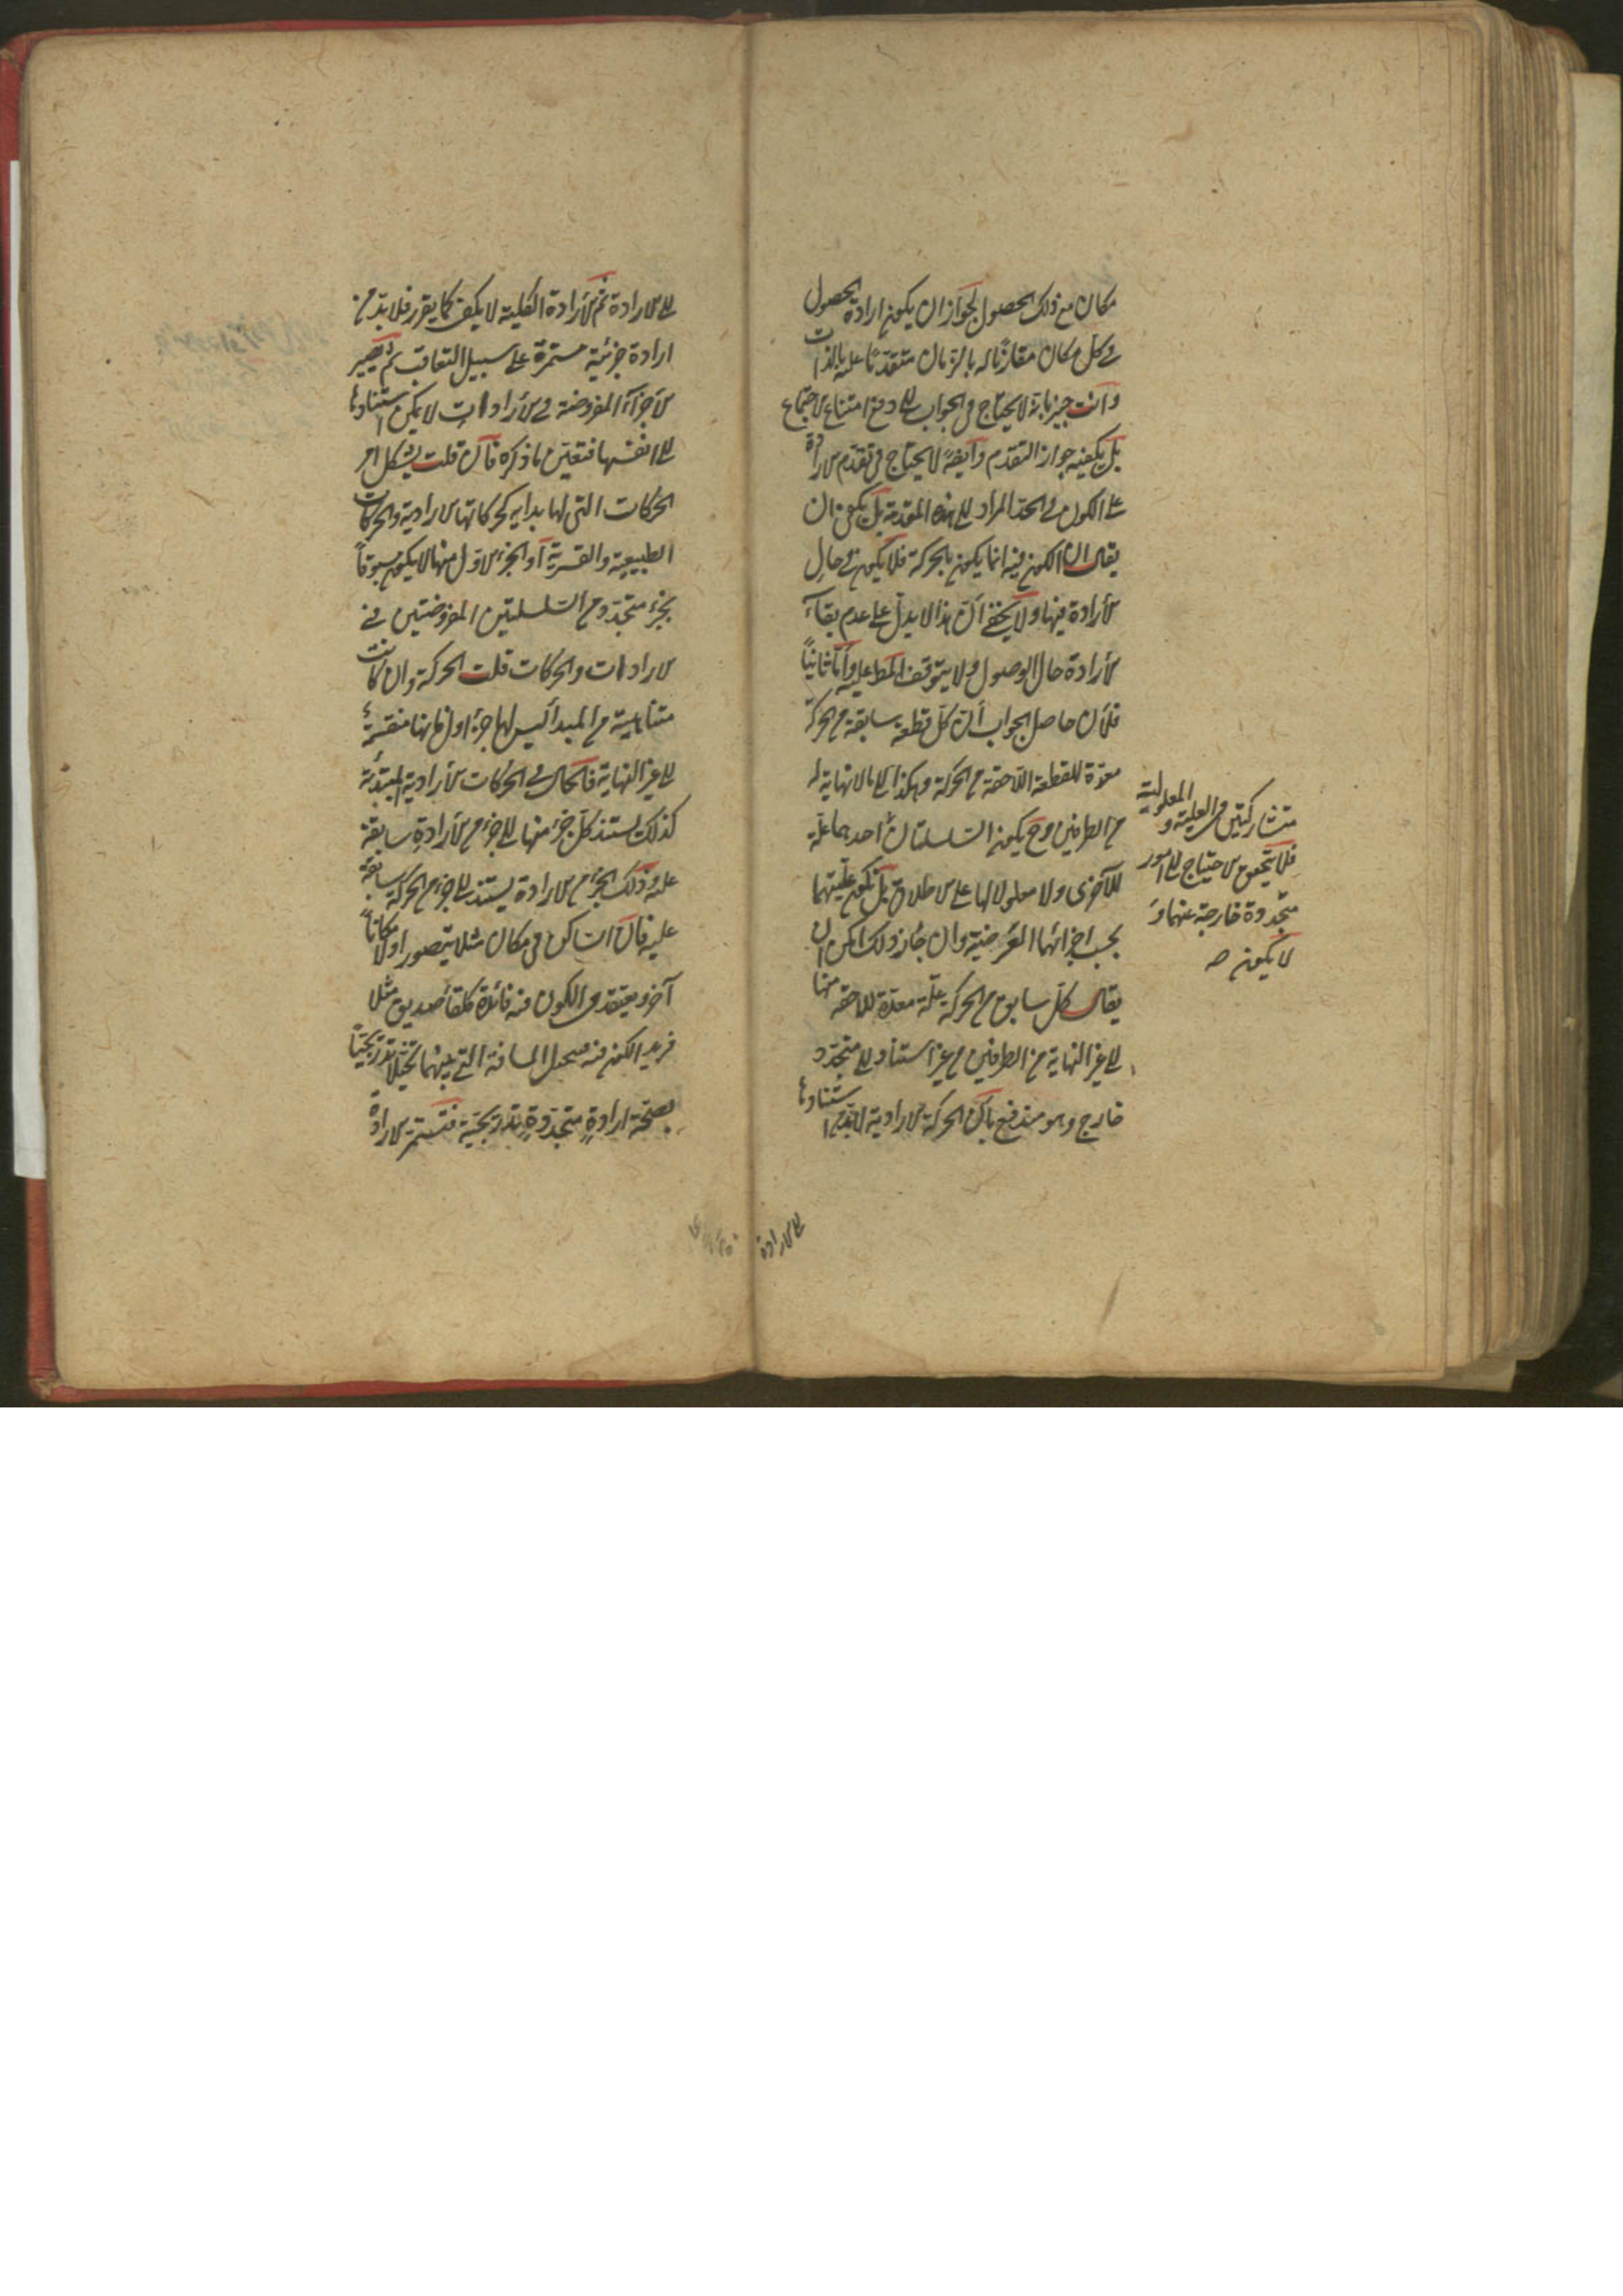 مكان مع ذلك الحصول لجواز ان يكون ارادة الحصول
في كل مكان مقارنا له بالزمان متقدما عليه بالذات
وانت خبير بانه لا يحتاج في الجواب الى دفع امتناع الاجتماع
بل يكفيه جواز التقدم وايضا لا يحتاج في تقدم الارادة
على الكون في الحد المراد الى هذه المقدمة بل يكفي ان
يقال ان الكون فيه انما يكون بالحركة فلا يكون في حال
الارادة فيها ولا يخفى ان هذا لا يدل على عدم بقاء
الارادة حال الوصول ولا يتوقف المط عليه واما ثانيا
فلان حاصل الجواب ان كل قطعة سابقة من الحركة
معدة للقطعة اللاحقة من الحركة وهكذا الى ما لا نهاية له
من الطرفين وح يكون السلسلتان احدهما علة
للاخرى ولا معلولا لها على الاطلاق بل تكون عليتهما
بحسب اجزائهما الفرضية وان جاز ذلك امكن ان
يقال كل سابق من الحركة علة معدة للاحقه منها
الى غير النهاية من الطرفين من غير استناد الى متجدد
خارج وهو مندفع بان الحركة الارادية لابد من استنادها
متشاركتين في العلية والمعلولية
فلا يتحقق الاحتياج الى امور
متجددة خارجة عنهما و
لا يكون صه
الى الارادة
الى الارادة ثم الارادة الكلية لا يكفي كما يقرر فلا بد من
ارادة جزئية مستمرة على سبيل التعاقب ثم يصير
الاجزاء المفروضة في الارادات لا يمكن استنادها
الى انفسها فتعين ما ذكره فان قلت يشكل امر
الحركات التي لها بداية كحركاتها الارادية والحركات
الطبيعية والقسرية او الجزء الاول منها لا يكون مسبوقا
بجزء متجدد من السلسلتين المفروضتين في
الارادات والحركات قلت الحركة وان كانت
متناهية من المبدأ ليس لها جزء اول فانها منقسمة
الى غير النهاية فالحال في الحركات الارادية المبتدئة
كذلك يستند كل جزء منها الى جزء من الارادة سابقة
عليه وذلك الجزء من الارادة يستند الى جزء من الحركة سابقة
عليه فان الساكن في مكان مثلا يتصور اولا مكانا
آخر ويعتقد في الكون فيه فائدة كلقاء صديق مثلا
فيريد الكون فيه فيتخيل المسافة التي بينهما تخيلا تدريجيا
يصحبه ارادة متجددة تدريجية فتستمر الارادة